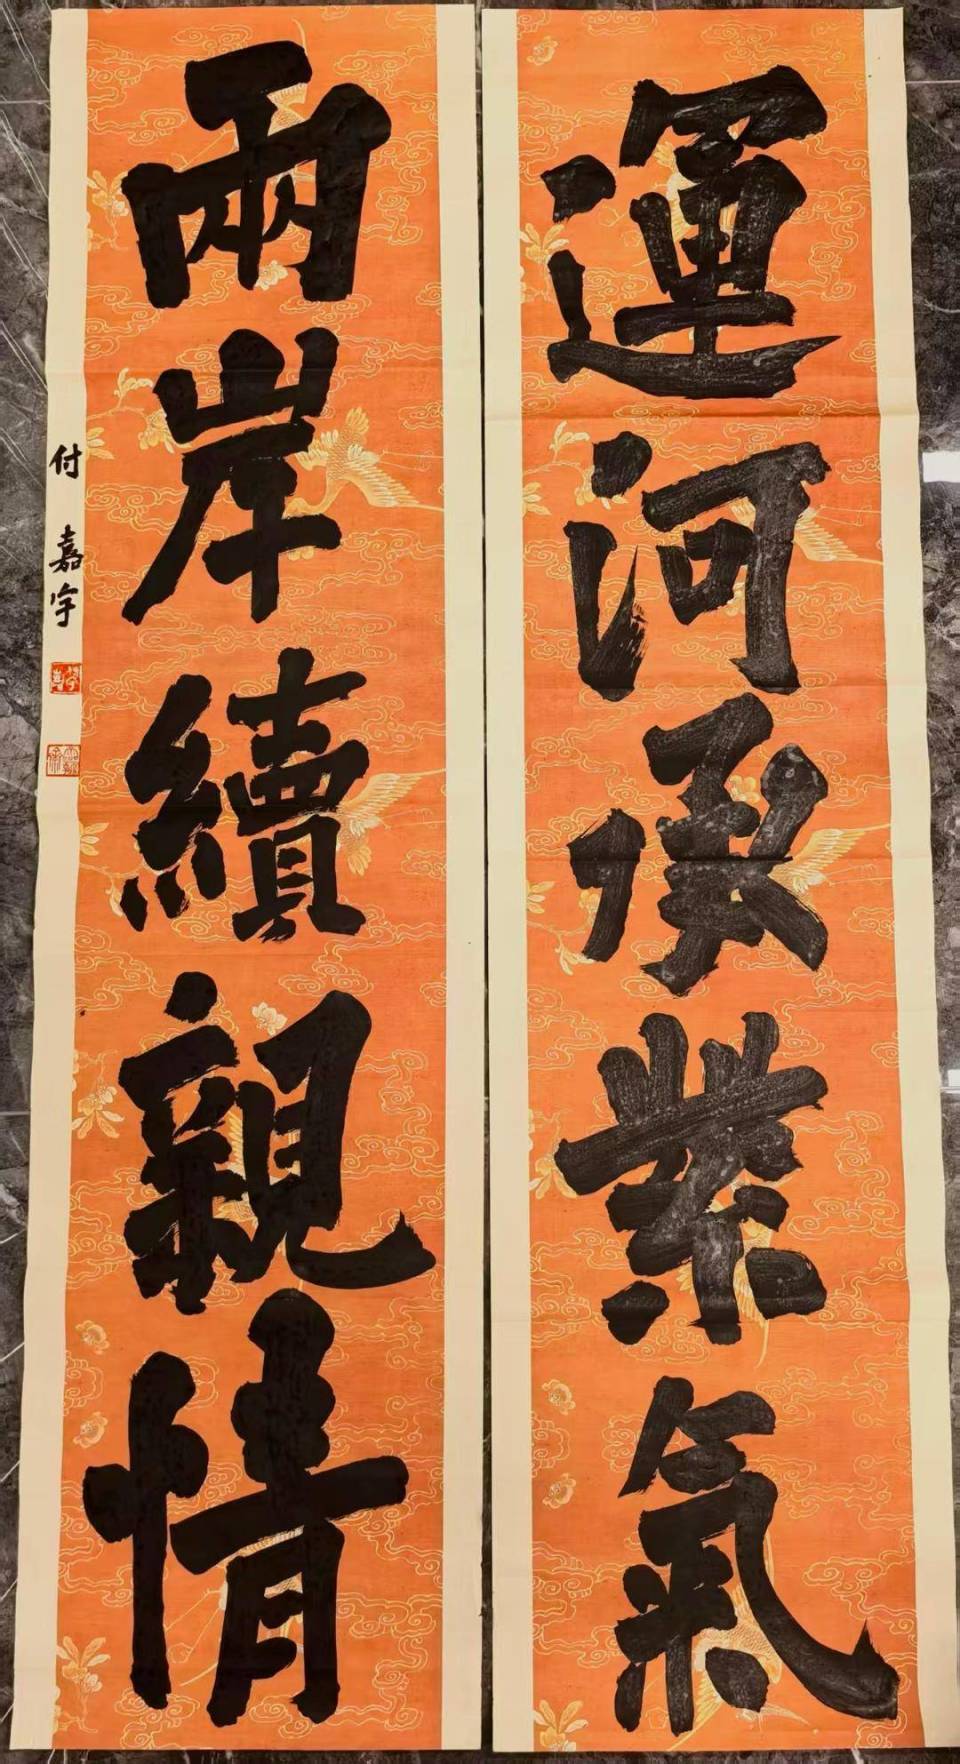 運河承紫氣
兩岸續親情
付嘉宇